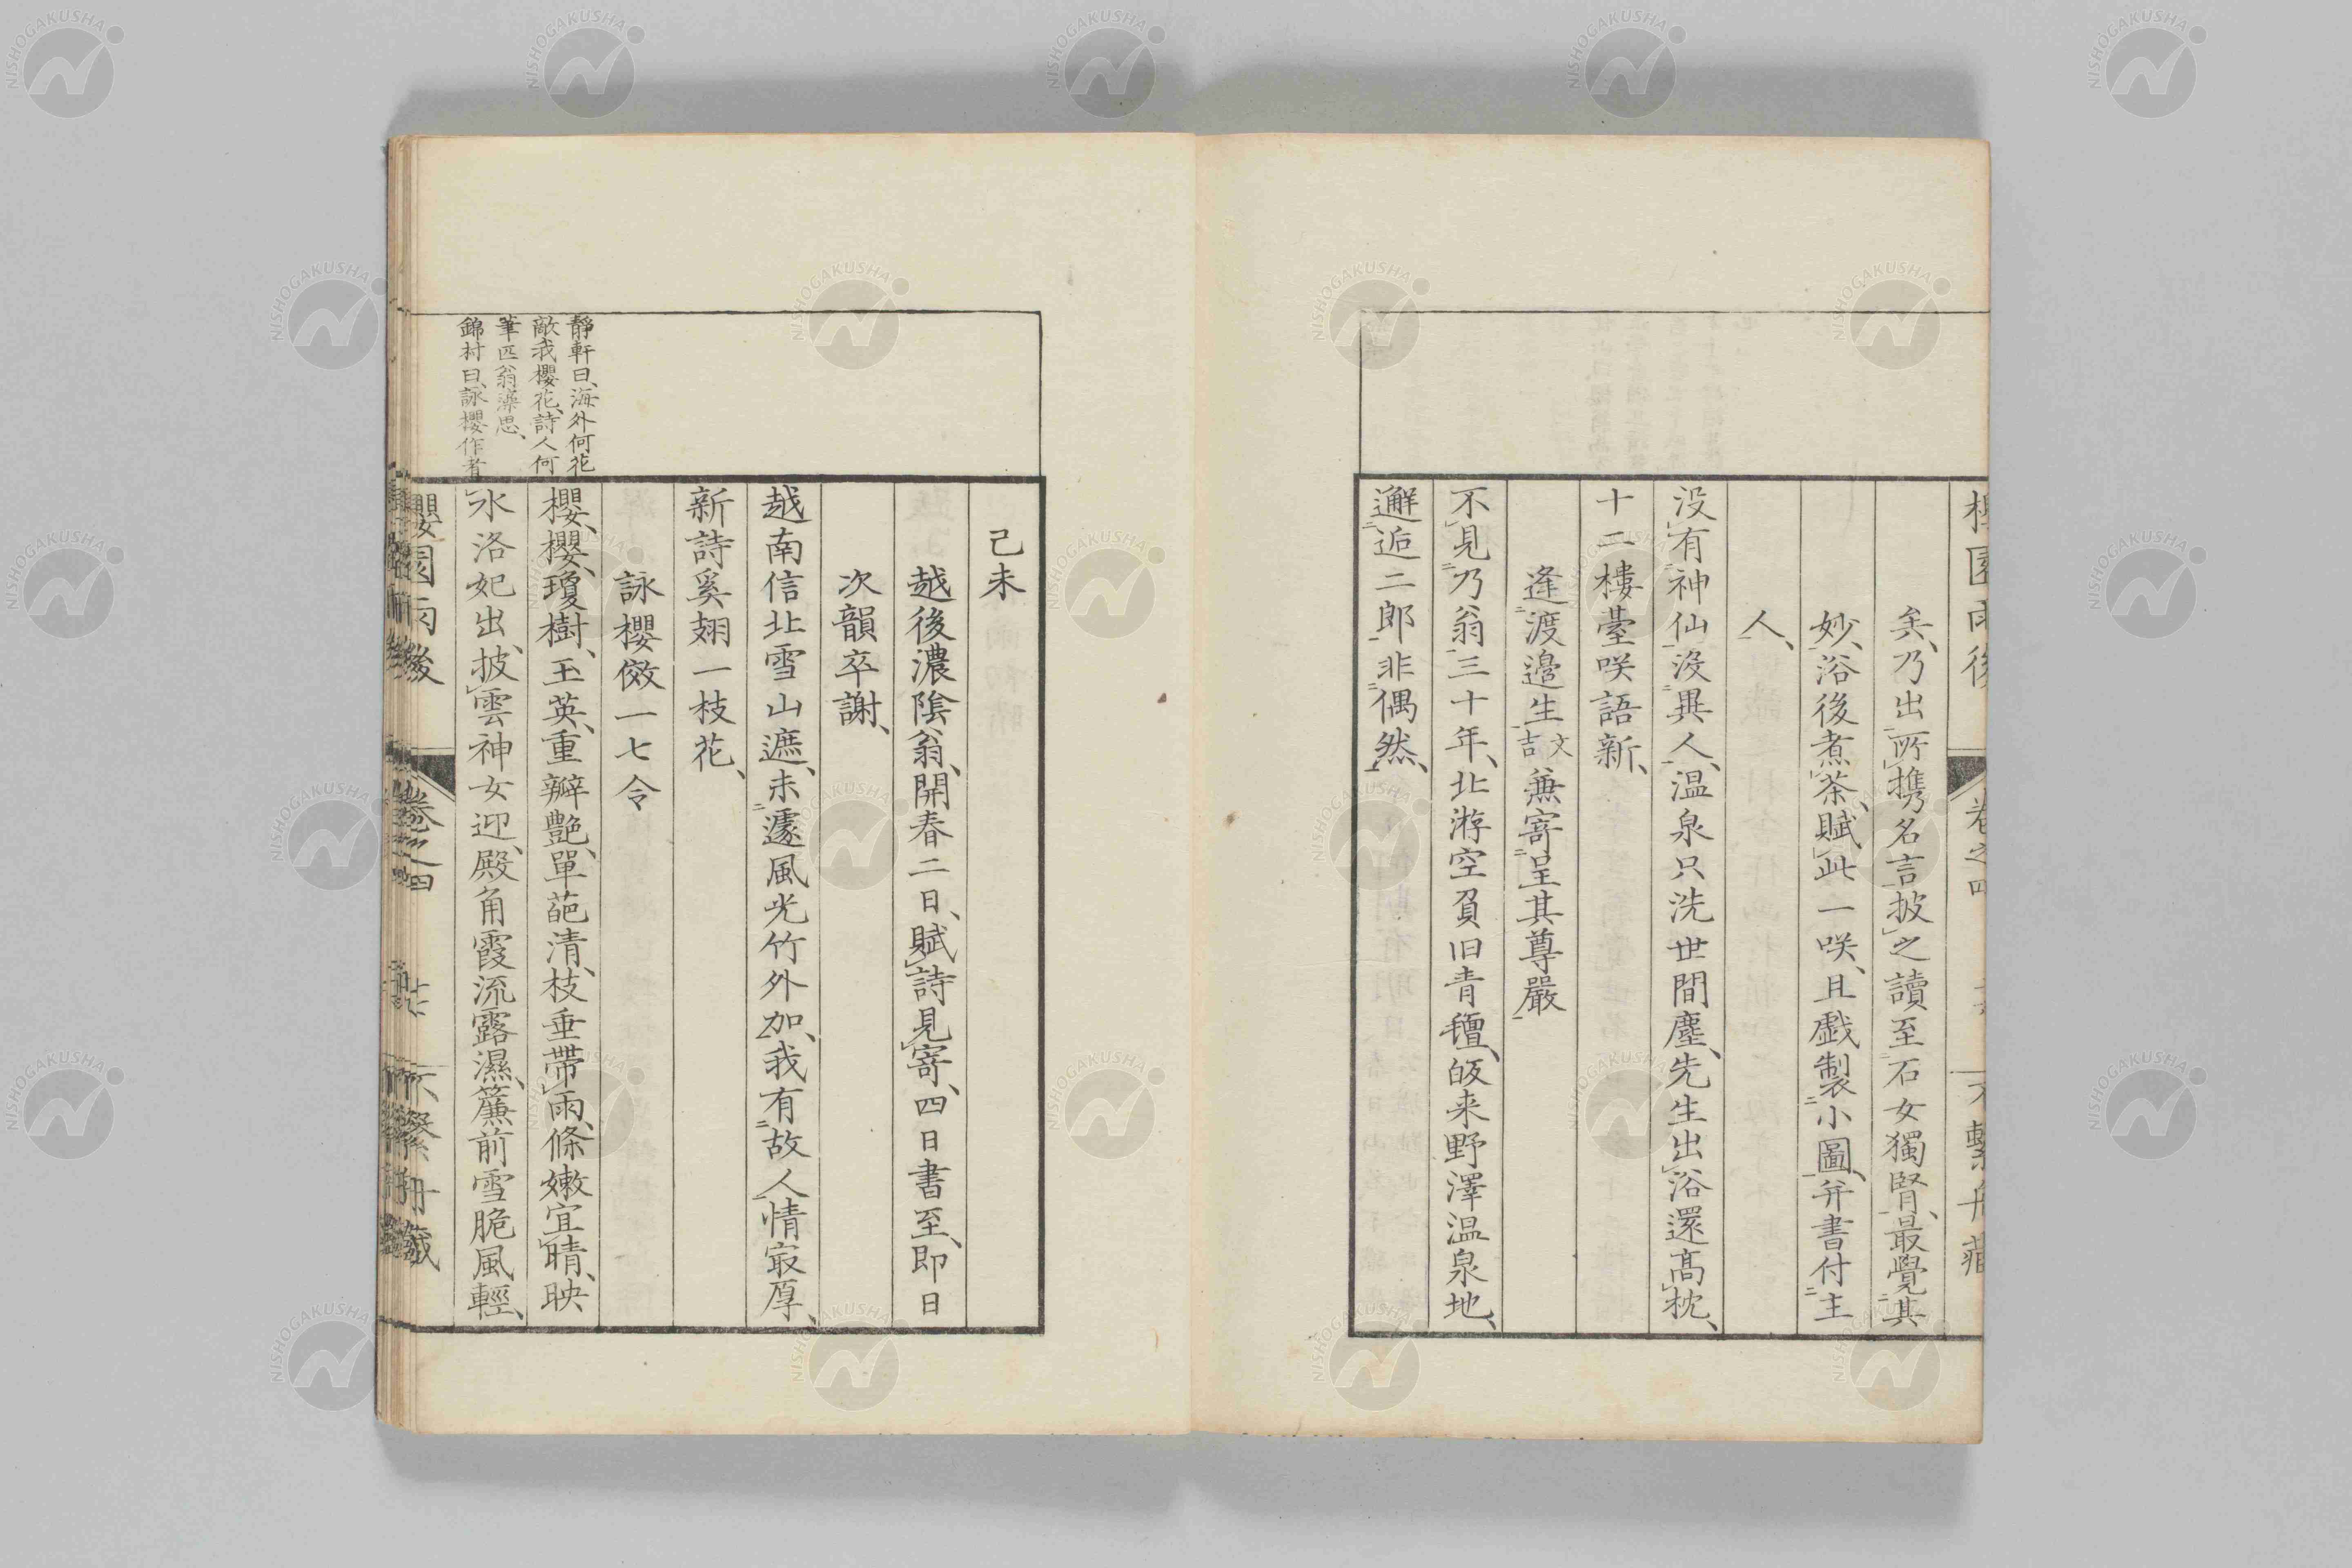 矣、乃出所携名言披之讀至石女獨腎、最覺其
妙、浴後煮茶、賦此一咲、且戯製小圖、并書付主
人、
没有神仙没異人、温泉只洗世間塵、先生出浴還高枕、
十二樓臺咲語新、
逢渡邉生文吉兼寄呈其尊嚴
不見乃翁三十年、北游空負旧青氊、皈来野澤温泉地、
邂逅二郎非偶然、
己未
越後濃陰翁、開春二日、賦詩見寄、四日書至、即日
次韻卒謝、
越南信北雪山遮、未遽風光竹外加、我有故人情㝡厚、
新詩奚翅一枝花、
詠櫻傚一七令
靜軒曰、海外何花
敵我櫻花、詩人何
筆匹翁藻思、
錦村曰、詠櫻作者
櫻、櫻、瓊樹、玉英、重瓣艶、單葩清、枝垂帶雨、條嫩宜晴、映
水洛妃出、披雲神女迎、殿角霞流露濕、簾前雪脆風輕、
櫻園雨後 卷之四
NISHOGAKUSHA